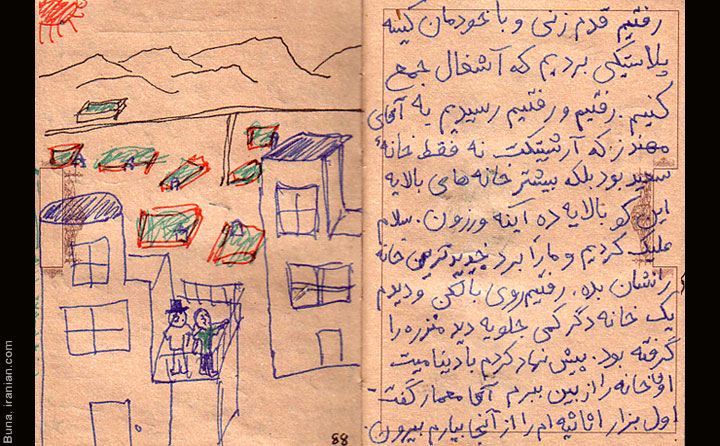 رفتیم قدم زنی و با خودمان کیسه
پلاستیکی بردیم که آشغال جمع
کنیم. رفتیم و رفتیم رسیدیم به آقای
مهندز که آرشیتکت نه فقط خانهٔ
سعید بود بلکه بیشتر خانه های بالایه
این کو بالایه ده اینه ورزون. سلام
علیک کردیم و مارا برد جدیدترین خانه
را نشان بده. رفتیم روی بالکن و دیدم
یک خانه دگر کمی جلویه دید منزره را
گرفته بود. پیش نهاد کردم با دینامیت
خانه را از بین ببرم آقا معمار گفت-
اول بزار اثاثیه ام را از آنجا بیارم بیرون
88
Buna, iranian.com